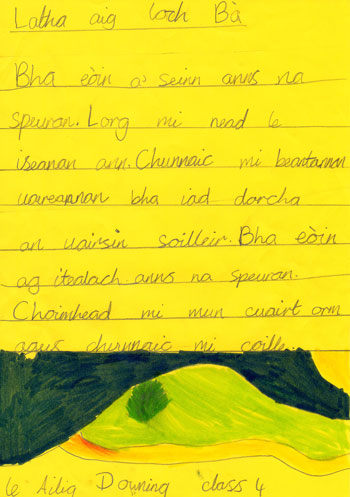 Latha aig Loch Bà
Bha eòin a' seinn anns na
speuran. Lorg mi nead le
iseanan ann. Chunnaic mi beantannan
uaireannan bha iad dorcha
an uairsin soilleir. Bha eòin
ag itealach anns na speuran.
Choimhead mi mun cuairt orm
agus chunnaic mi coille.
le Ailig Downing class 4